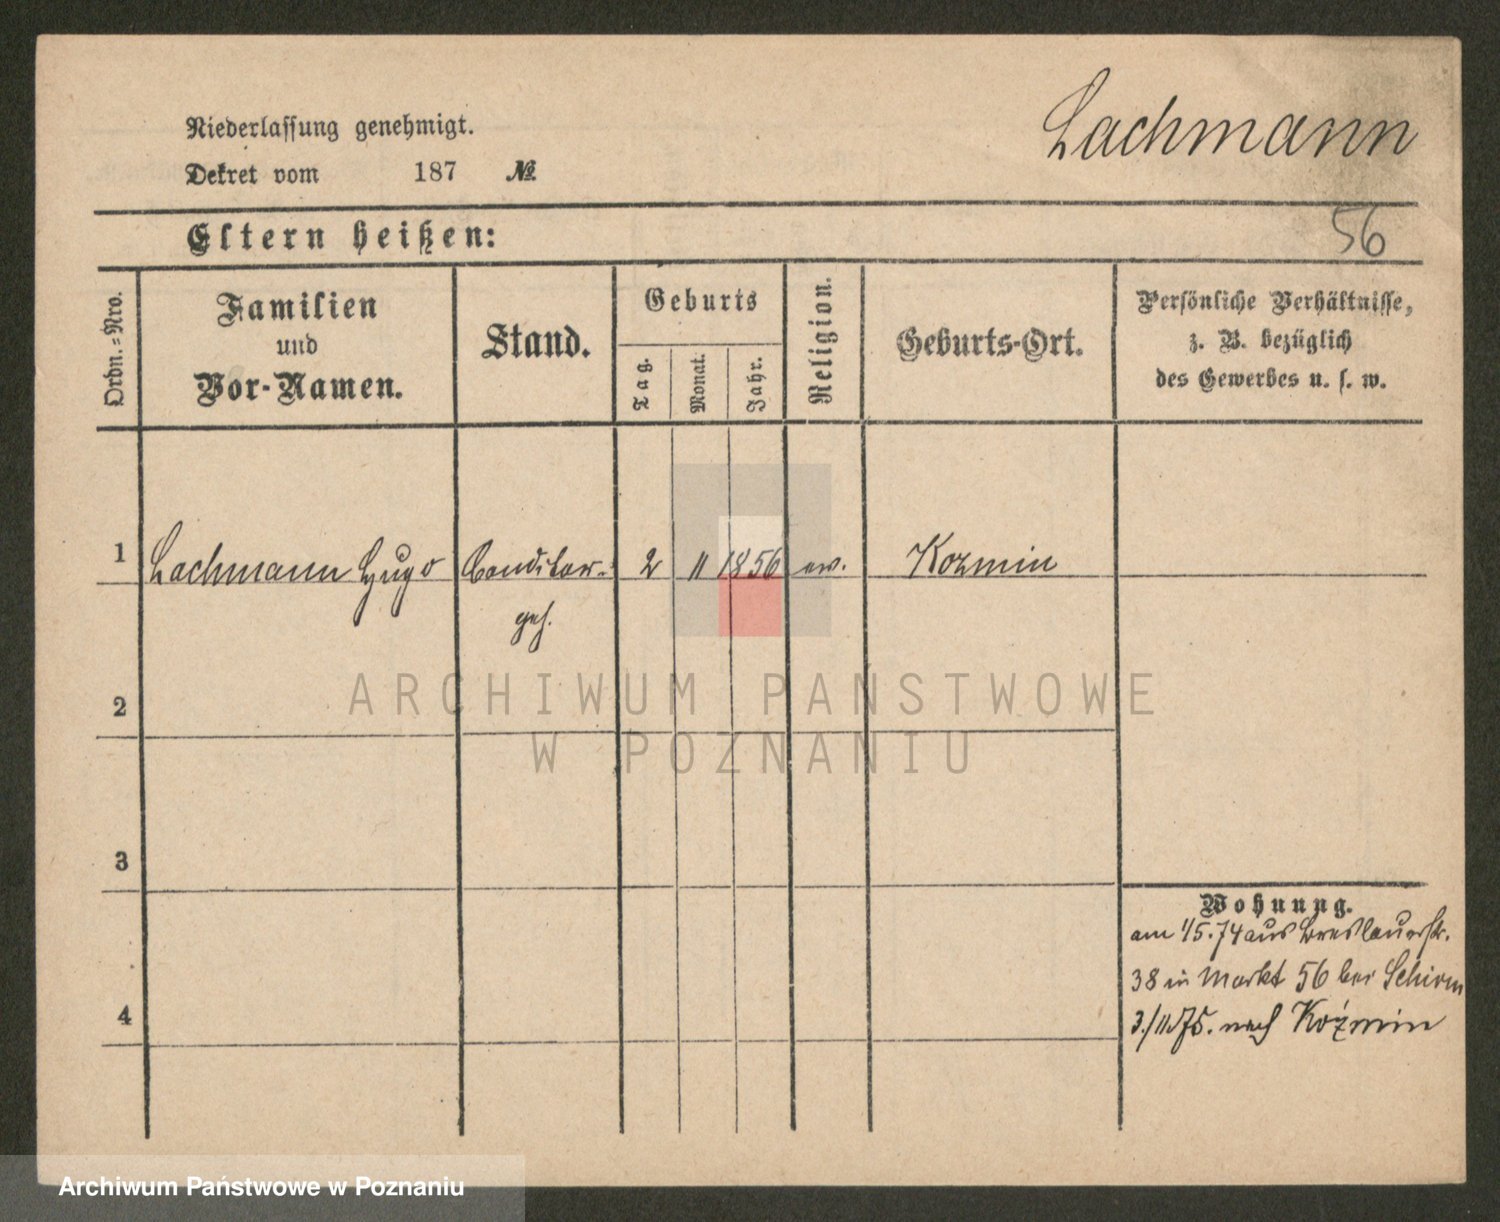 Lachmann
Niederlassung genehmigt.
Dekret vom 187 №
56
Eltern heißen:
Ordn.=Nro.
Familien
und
Vor-Namen.
Stand.
Geburts
Tag.
Monat.
Jahr.
Religion.
Geburts-Ort.
Persönliche Verhältnisse,
z. B. bezüglich
des Gewerbes u. s. w.
1 Lachmann Hugo Conditor- 2 11 1856 ev. Kozmin
geh.
2
3
4
Wohnung.
am 1/5.74 aus Breslauerstr.
38 in Markt 56 bei Schirm
3./11.75. nach Koźmin
ARCHIWUM PAŃSTWOWE
W POZNANIU
Archiwum Państwowe w Poznaniu